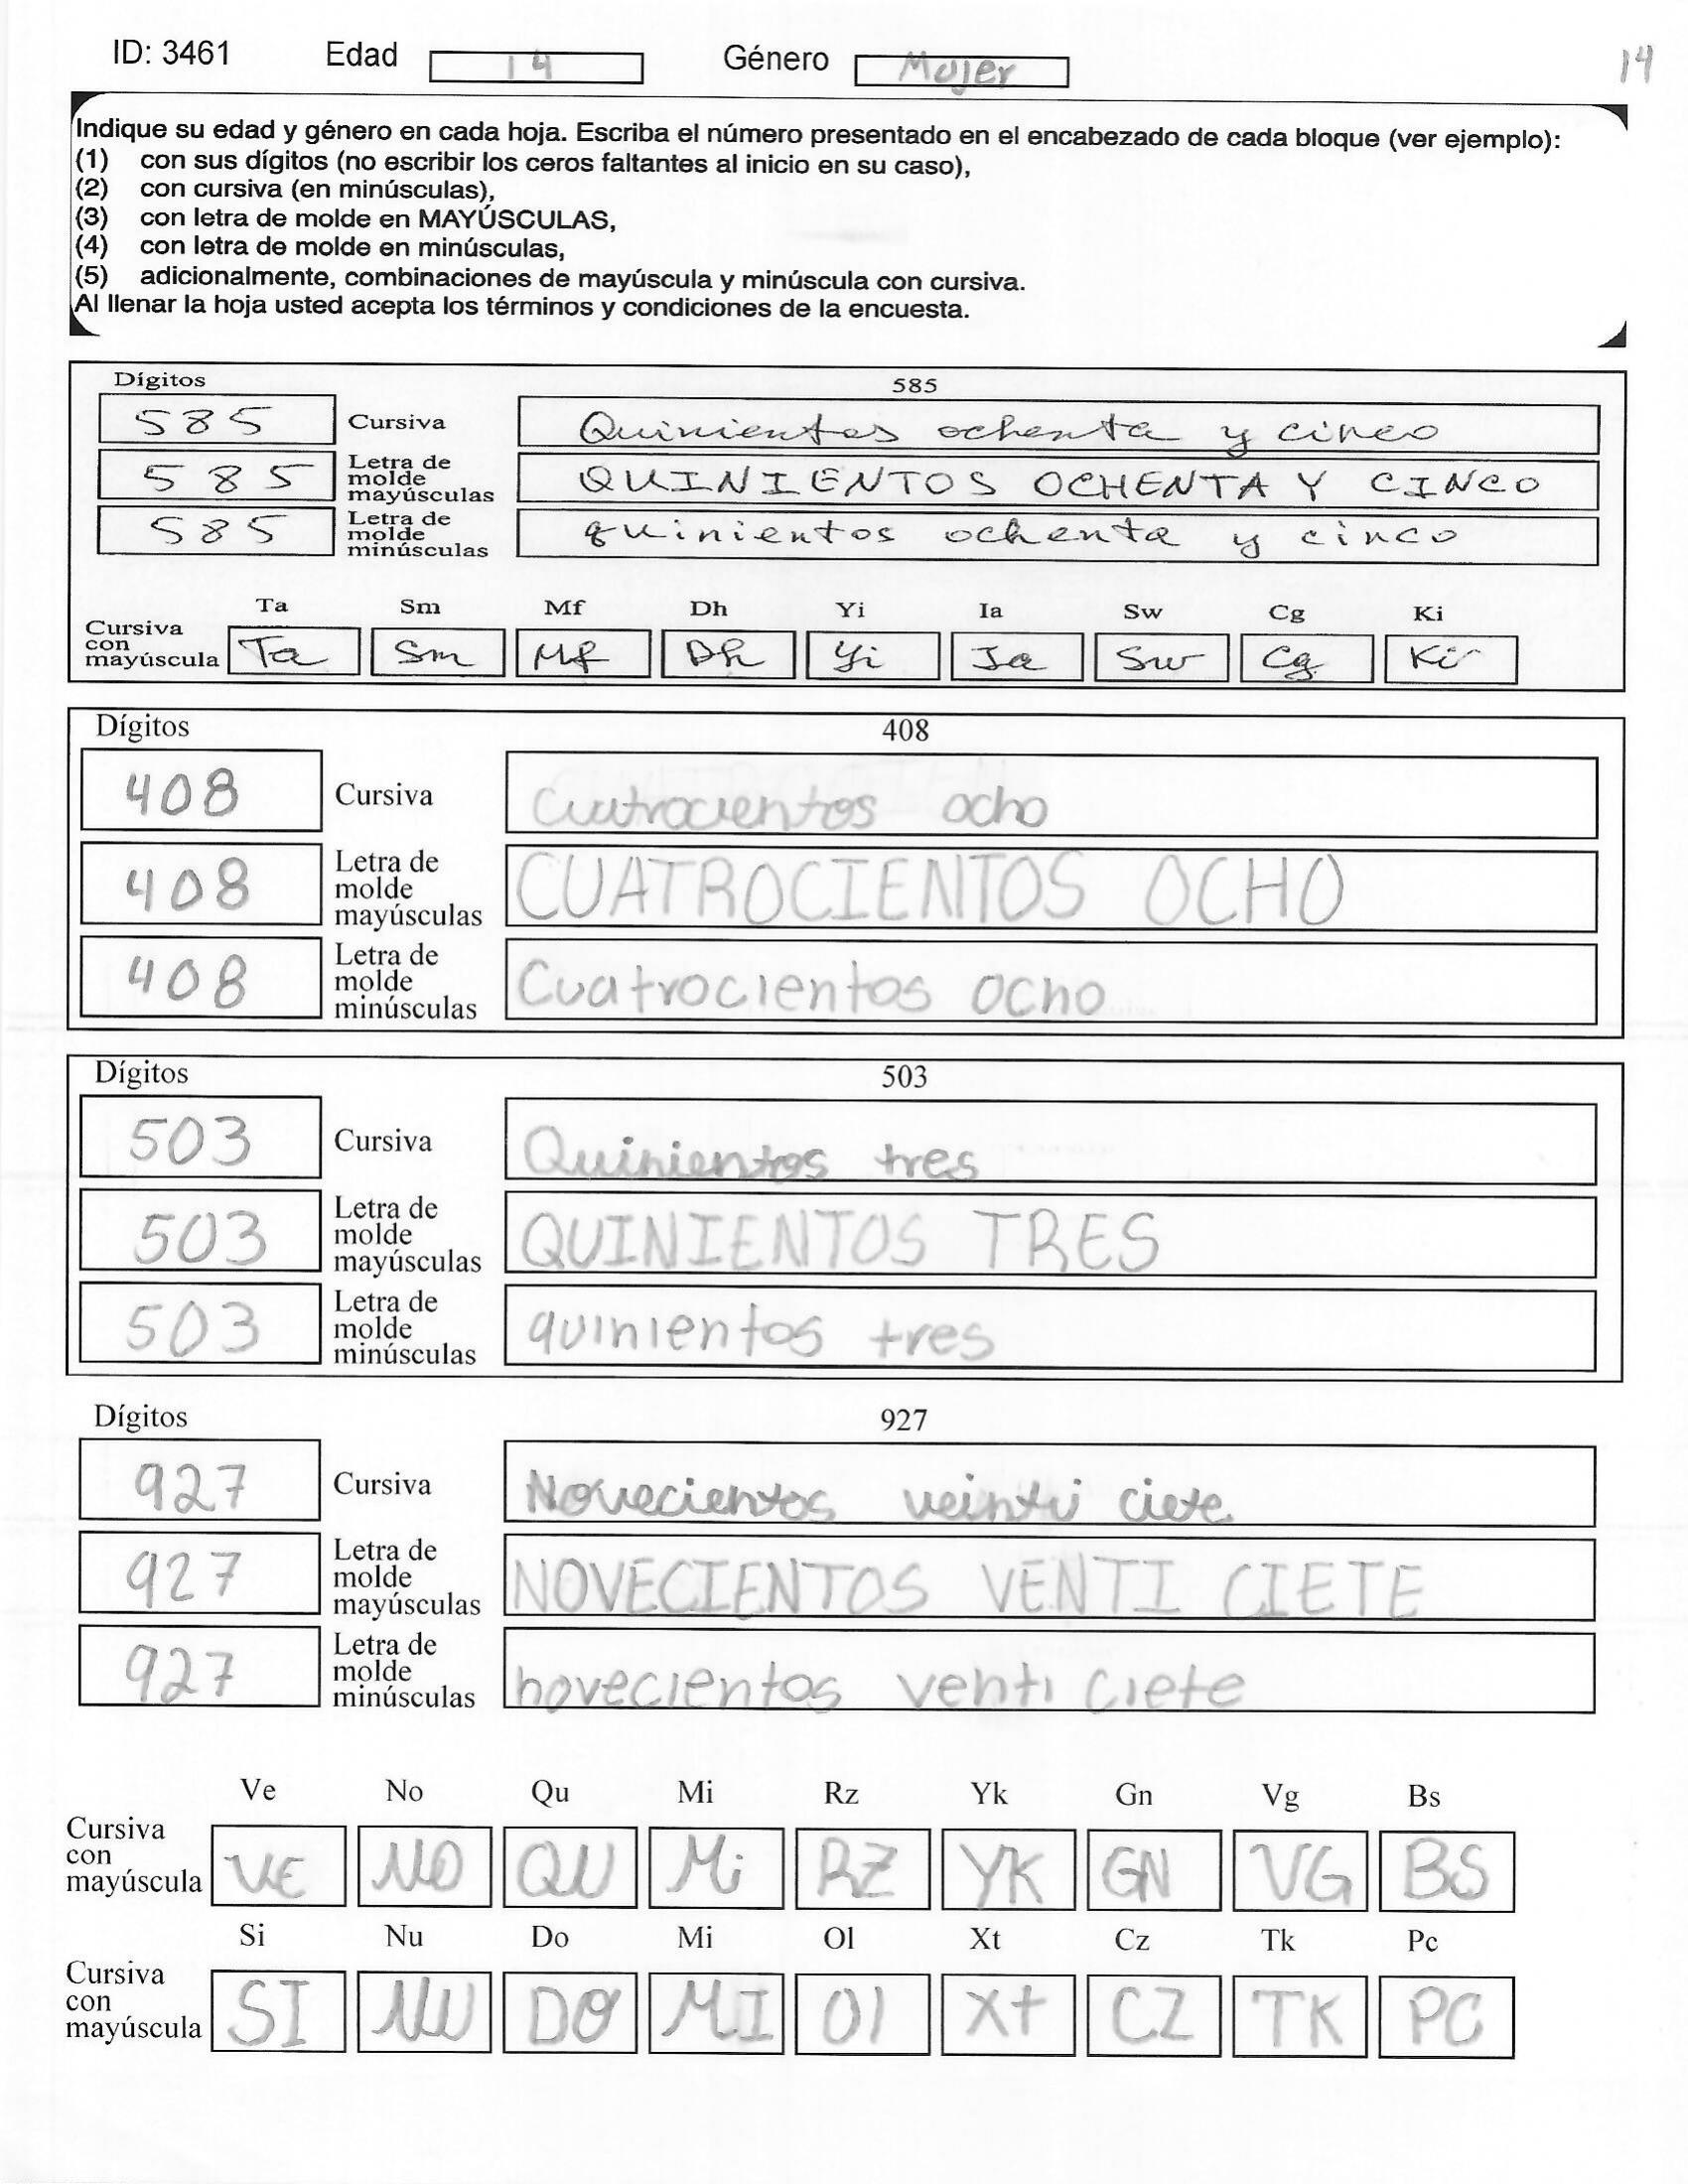 ID: 3461 Edad 14 Género Mujer 14
Indique su edad y género en cada hoja. Escriba el número presentado en el encabezado de cada bloque (ver ejemplo):
(1) con sus dígitos (no escribir los ceros faltantes al inicio en su caso),
(2) con cursiva (en minúsculas),
(3) con letra de molde en MAYÚSCULAS,
(4) con letra de molde en minúsculas,
(5) adicionalmente, combinaciones de mayúscula y minúscula con cursiva.
Al llenar la hoja usted acepta los términos y condiciones de la encuesta.
Dígitos 585
585 Cursiva Quinientos ochenta y cinco
585 Letra de molde mayúsculas QUINIENTOS OCHENTA Y CINCO
585 Letra de molde minúsculas quinientos ochenta y cinco
Ta Sm Mf Dh Yi Ia Sw Cg Ki
Cursiva con mayúscula Ta Sm Mf Dh Yi Ia Sw Cg Ki
Dígitos 408
408 Cursiva Cuatrocientos ocho
408 Letra de molde mayúsculas CUATROCIENTOS OCHO
408 Letra de molde minúsculas Cuatrocientos ocho
Dígitos 503
503 Cursiva Quinientos tres
503 Letra de molde mayúsculas QUINIENTOS TRES
503 Letra de molde minúsculas quinientos tres
Dígitos 927
927 Cursiva Novecientos veinti ciete
927 Letra de molde mayúsculas NOVECIENTOS VENTI CIETE
927 Letra de molde minúsculas novecientos venti ciete
Ve No Qu Mi Rz Yk Gn Vg Bs
Cursiva con mayúscula VE NO QU Mi RZ YK GN VG BS
Si Nu Do Mi Ol Xt Cz Tk Pc
Cursiva con mayúscula SI NU DO MI Ol Xt CZ TK PC